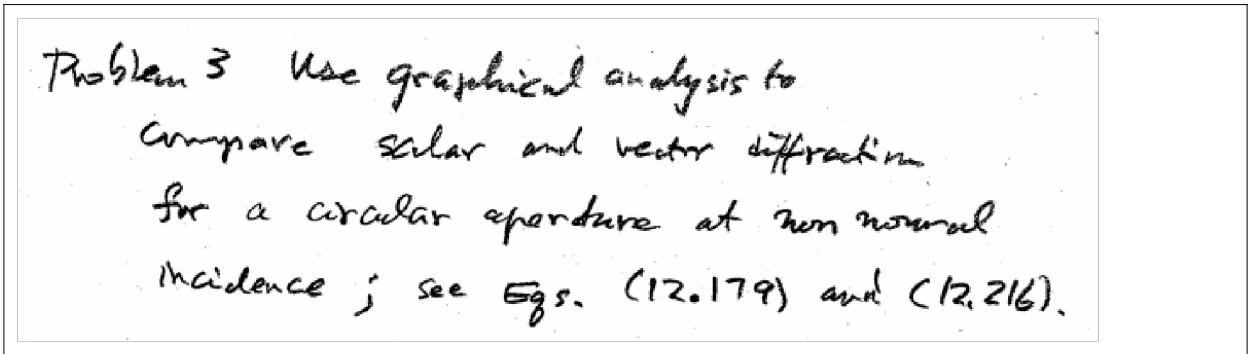 Problem 3 Use graphical analysis to
compare scalar and vector diffraction
for a circular aperture at non normal
incidence ; see Eqs. (12.179) and (12.216).